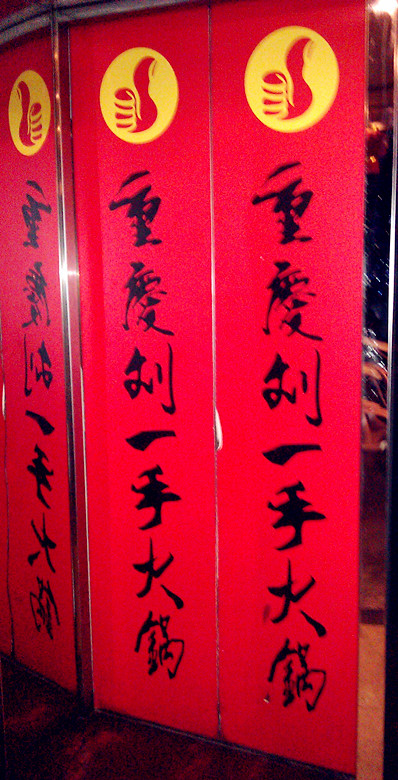 重慶刘一手火鍋
重慶刘一手火鍋
重慶刘一手火鍋